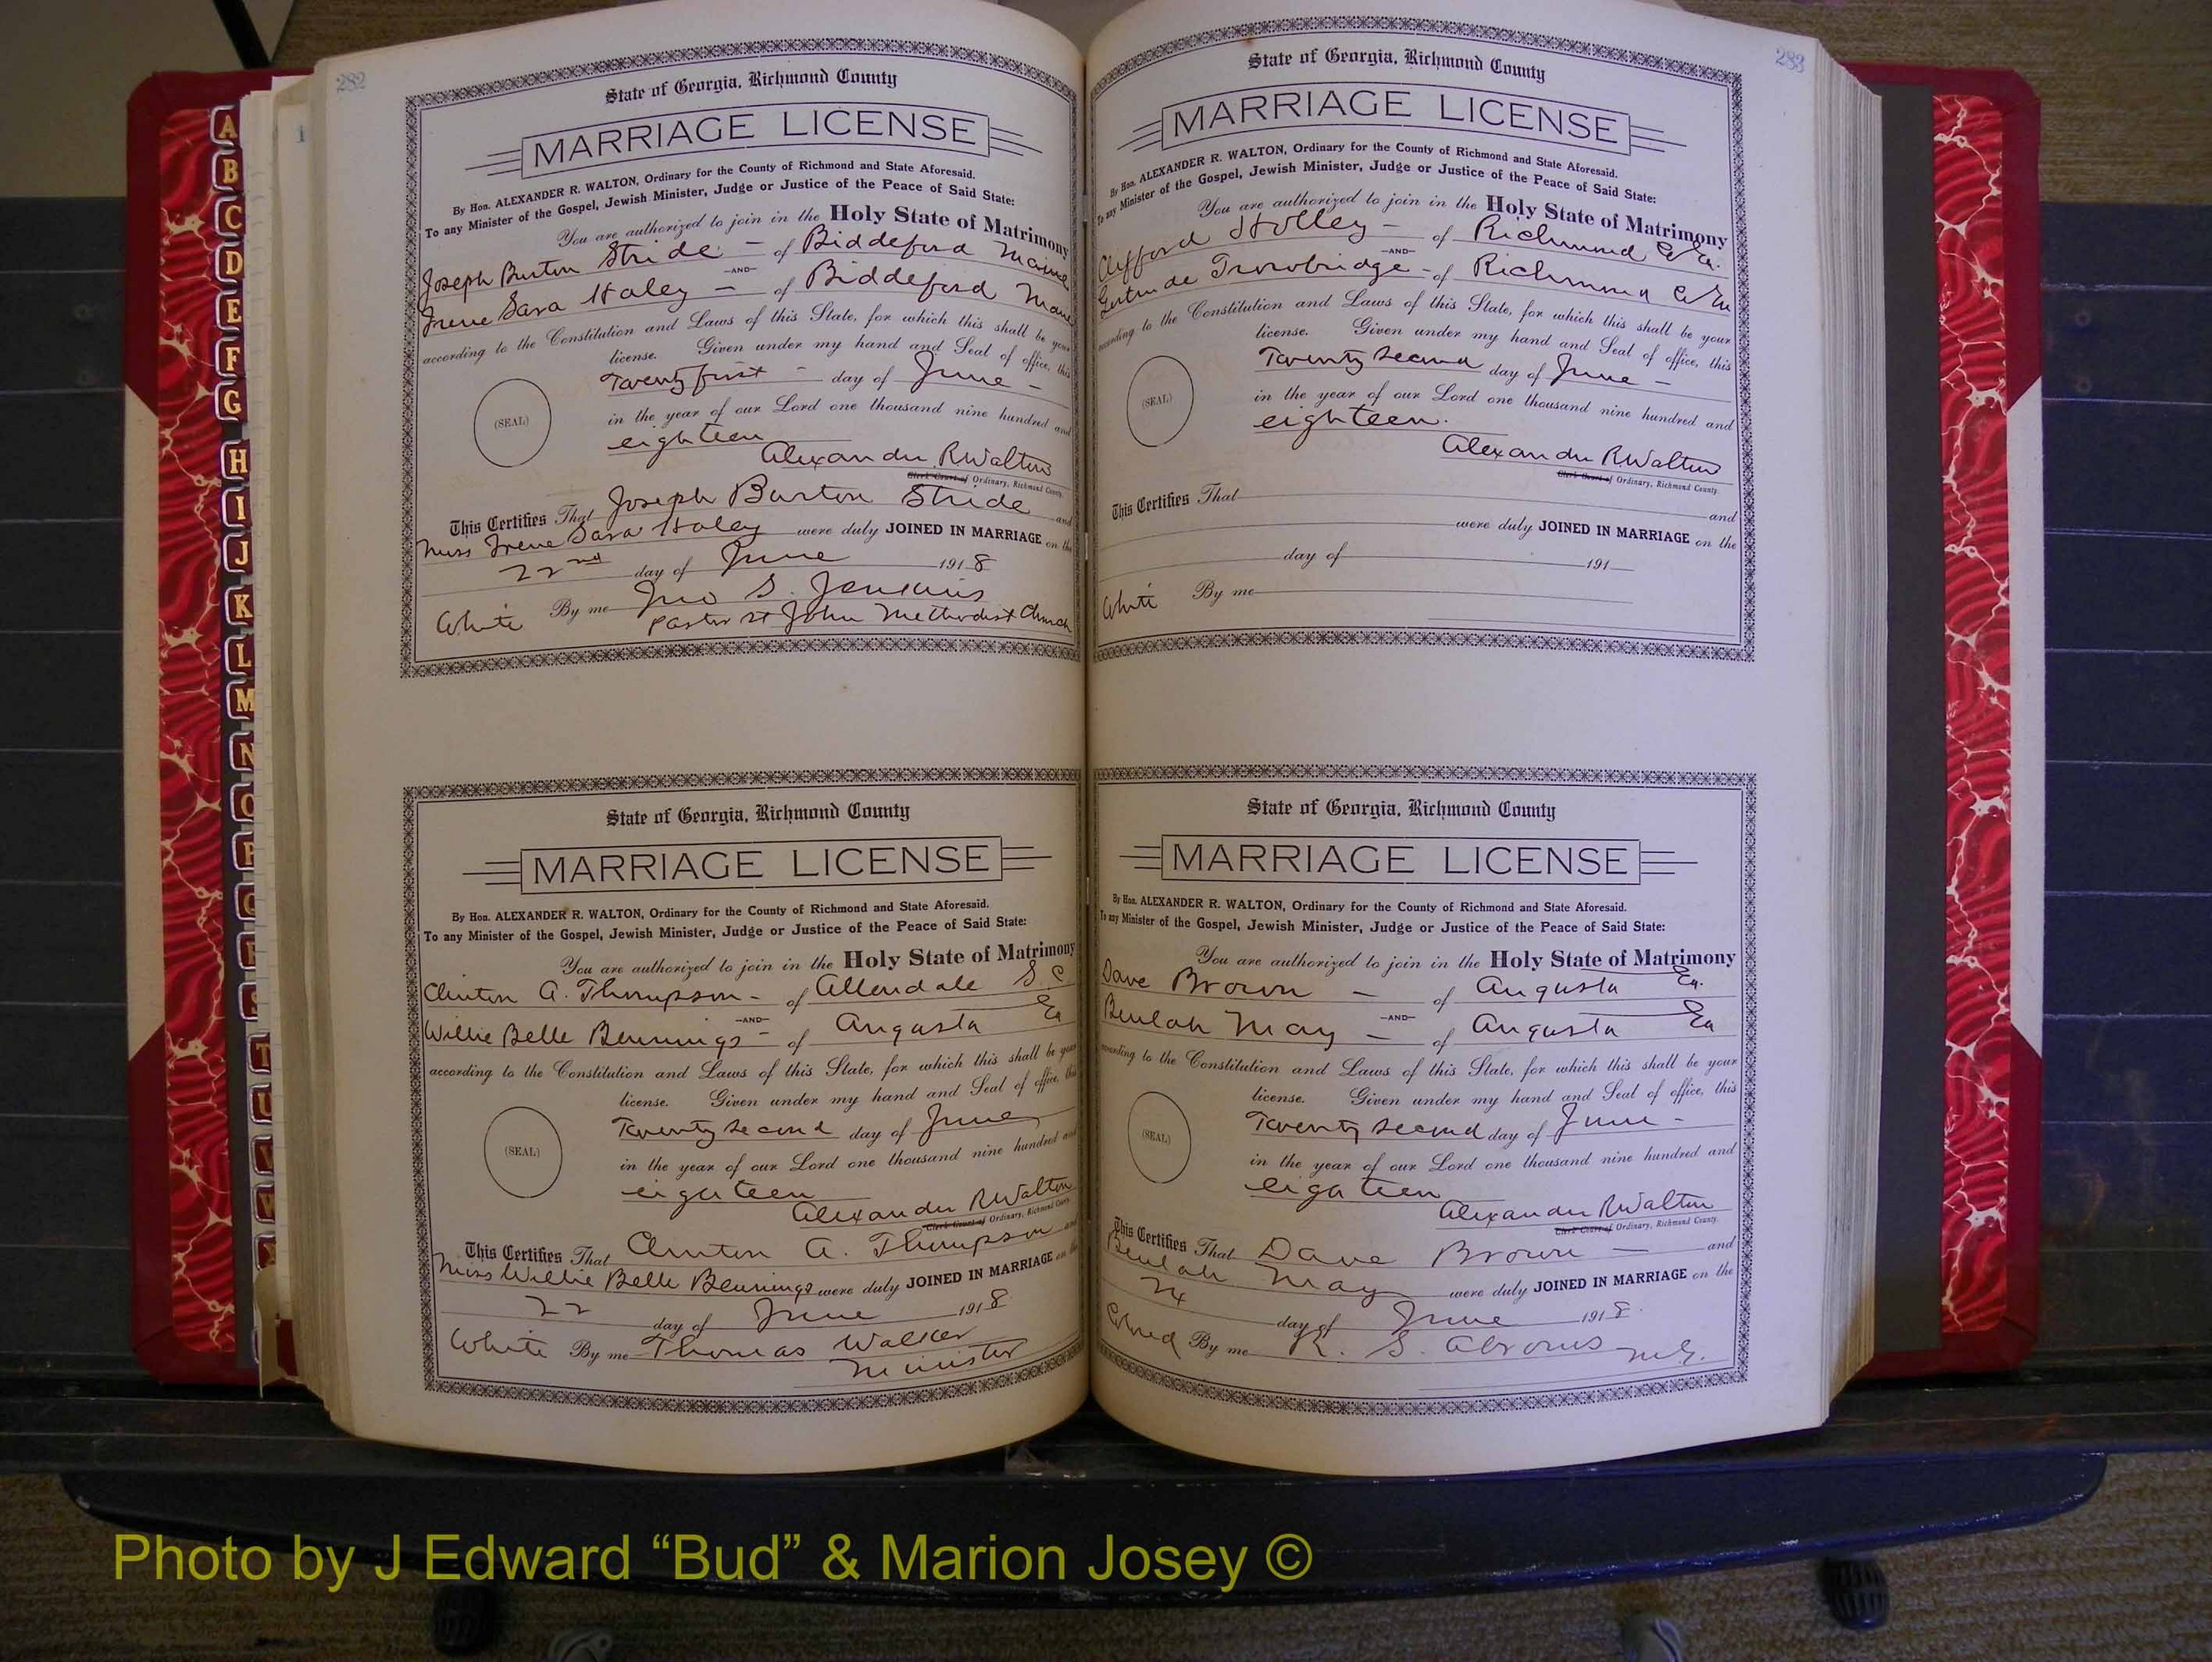 282
State of Georgia, Richmond County
MARRIAGE LICENSE
By Hon. ALEXANDER R. WALTON, Ordinary for the County of Richmond and State Aforesaid.
To any Minister of the Gospel, Jewish Minister, Judge or Justice of the Peace of Said State:
You are authorized to join in the Holy State of Matrimony
Joseph Burton Stride - of Biddeford Maine
-AND-
Irene Sara Haley - of Biddeford Maine
according to the Constitution and Laws of this State, for which this shall be your
license. Given under my hand and Seal of office, this
Twenty first - day of June -
(SEAL)
in the year of our Lord one thousand nine hundred and
eighteen
Alexander R Walton
Clerk Court of Ordinary, Richmond County.
This Certifies That Joseph Burton Stride and
Miss Irene Sara Haley were duly JOINED IN MARRIAGE on the
22nd day of June 1918
White By me Jno S. Jenkins
Pastor St John Methodist Church
State of Georgia, Richmond County
MARRIAGE LICENSE
By Hon. ALEXANDER R. WALTON, Ordinary for the County of Richmond and State Aforesaid.
To any Minister of the Gospel, Jewish Minister, Judge or Justice of the Peace of Said State:
You are authorized to join in the Holy State of Matrimony
Clinton A. Thompson - of Allendale S.C
-AND-
Willie Belle Bennings - of Augusta Ga
according to the Constitution and Laws of this State, for which this shall be your
license. Given under my hand and Seal of office, this
Twenty second day of June
(SEAL)
in the year of our Lord one thousand nine hundred and
eighteen
Alexander R Walton
Clerk Court of Ordinary, Richmond County.
This Certifies That Clinton A. Thompson and
Miss Willie Belle Bennings were duly JOINED IN MARRIAGE on the
22 day of June 1918
White By me Thomas Walker
Minister
283
State of Georgia, Richmond County
MARRIAGE LICENSE
By Hon. ALEXANDER R. WALTON, Ordinary for the County of Richmond and State Aforesaid.
To any Minister of the Gospel, Jewish Minister, Judge or Justice of the Peace of Said State:
You are authorized to join in the Holy State of Matrimony
Clifford Holley - of Richmond Co Ga.
-AND-
Gertrude Trowbridge - of Richmond Co Ga
according to the Constitution and Laws of this State, for which this shall be your
license. Given under my hand and Seal of office, this
Twenty second day of June -
(SEAL)
in the year of our Lord one thousand nine hundred and
eighteen.
Alexander R Walton
Clerk Court of Ordinary, Richmond County.
This Certifies That and
were duly JOINED IN MARRIAGE on the
day of 191
White By me
State of Georgia, Richmond County
MARRIAGE LICENSE
By Hon. ALEXANDER R. WALTON, Ordinary for the County of Richmond and State Aforesaid.
To any Minister of the Gospel, Jewish Minister, Judge or Justice of the Peace of Said State:
You are authorized to join in the Holy State of Matrimony
Dave Brown - of Augusta Ga.
-AND-
Beulah May - of Augusta Ga
according to the Constitution and Laws of this State, for which this shall be your
license. Given under my hand and Seal of office, this
Twenty second day of June -
(SEAL)
in the year of our Lord one thousand nine hundred and
eighteen
Alexander R Walton
Clerk Court of Ordinary, Richmond County.
This Certifies That Dave Brown - and
Beulah May were duly JOINED IN MARRIAGE on the
24 day of June 1918
Colored By me R. S. Abrams M.G.
A
B
C
D
E
F
G
H
I
J
K
L
M
N
O
P
Q
R
S
T
U
V
W
Photo by J Edward “Bud” & Marion Josey ©